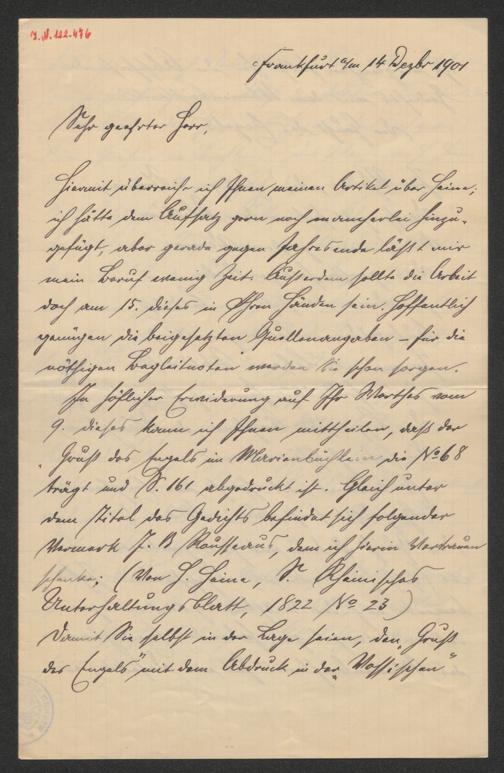 J.N. 122.476
Frankfurt a/m 14 Dezbr 1901
Sehr geehrter Herr,
Hiermit überreiche ich Ihnen meinen Artikel über Heine;
ich hätte dem Aufsatz gern noch mancherlei hinzu-
gefügt, aber gerade gegen Jahresende läßt mir
mein Beruf wenig Zeit. Außerdem sollte die Arbeit
doch am 15. dieses in Ihren Händen sein. Hoffentlich
genügen die beigesetzten Quellenangaben – für die
nöthigen Begleitnoten werden Sie schon sorgen.
In höflicher Erwiderung auf Ihr Werthes vom
9. dieses kann ich Ihnen mittheilen, daß der
Gruß des Engels im Marienbüchlein die No 68
trägt und S. 161 abgedruckt ist. Gleich unter
dem Titel des Gedichts befindet sich folgender
Vermerk J. B Rousseaus, dem ich hierin Vertrauen
schenke; (Von H. Heine, S. Rheinisches
Unterhaltungsblatt, 1822 No 23)
Damit Sie selbst in der Lage seien, den „Gruß
des Engels" mit dem Abdruck in der „Vossischen"